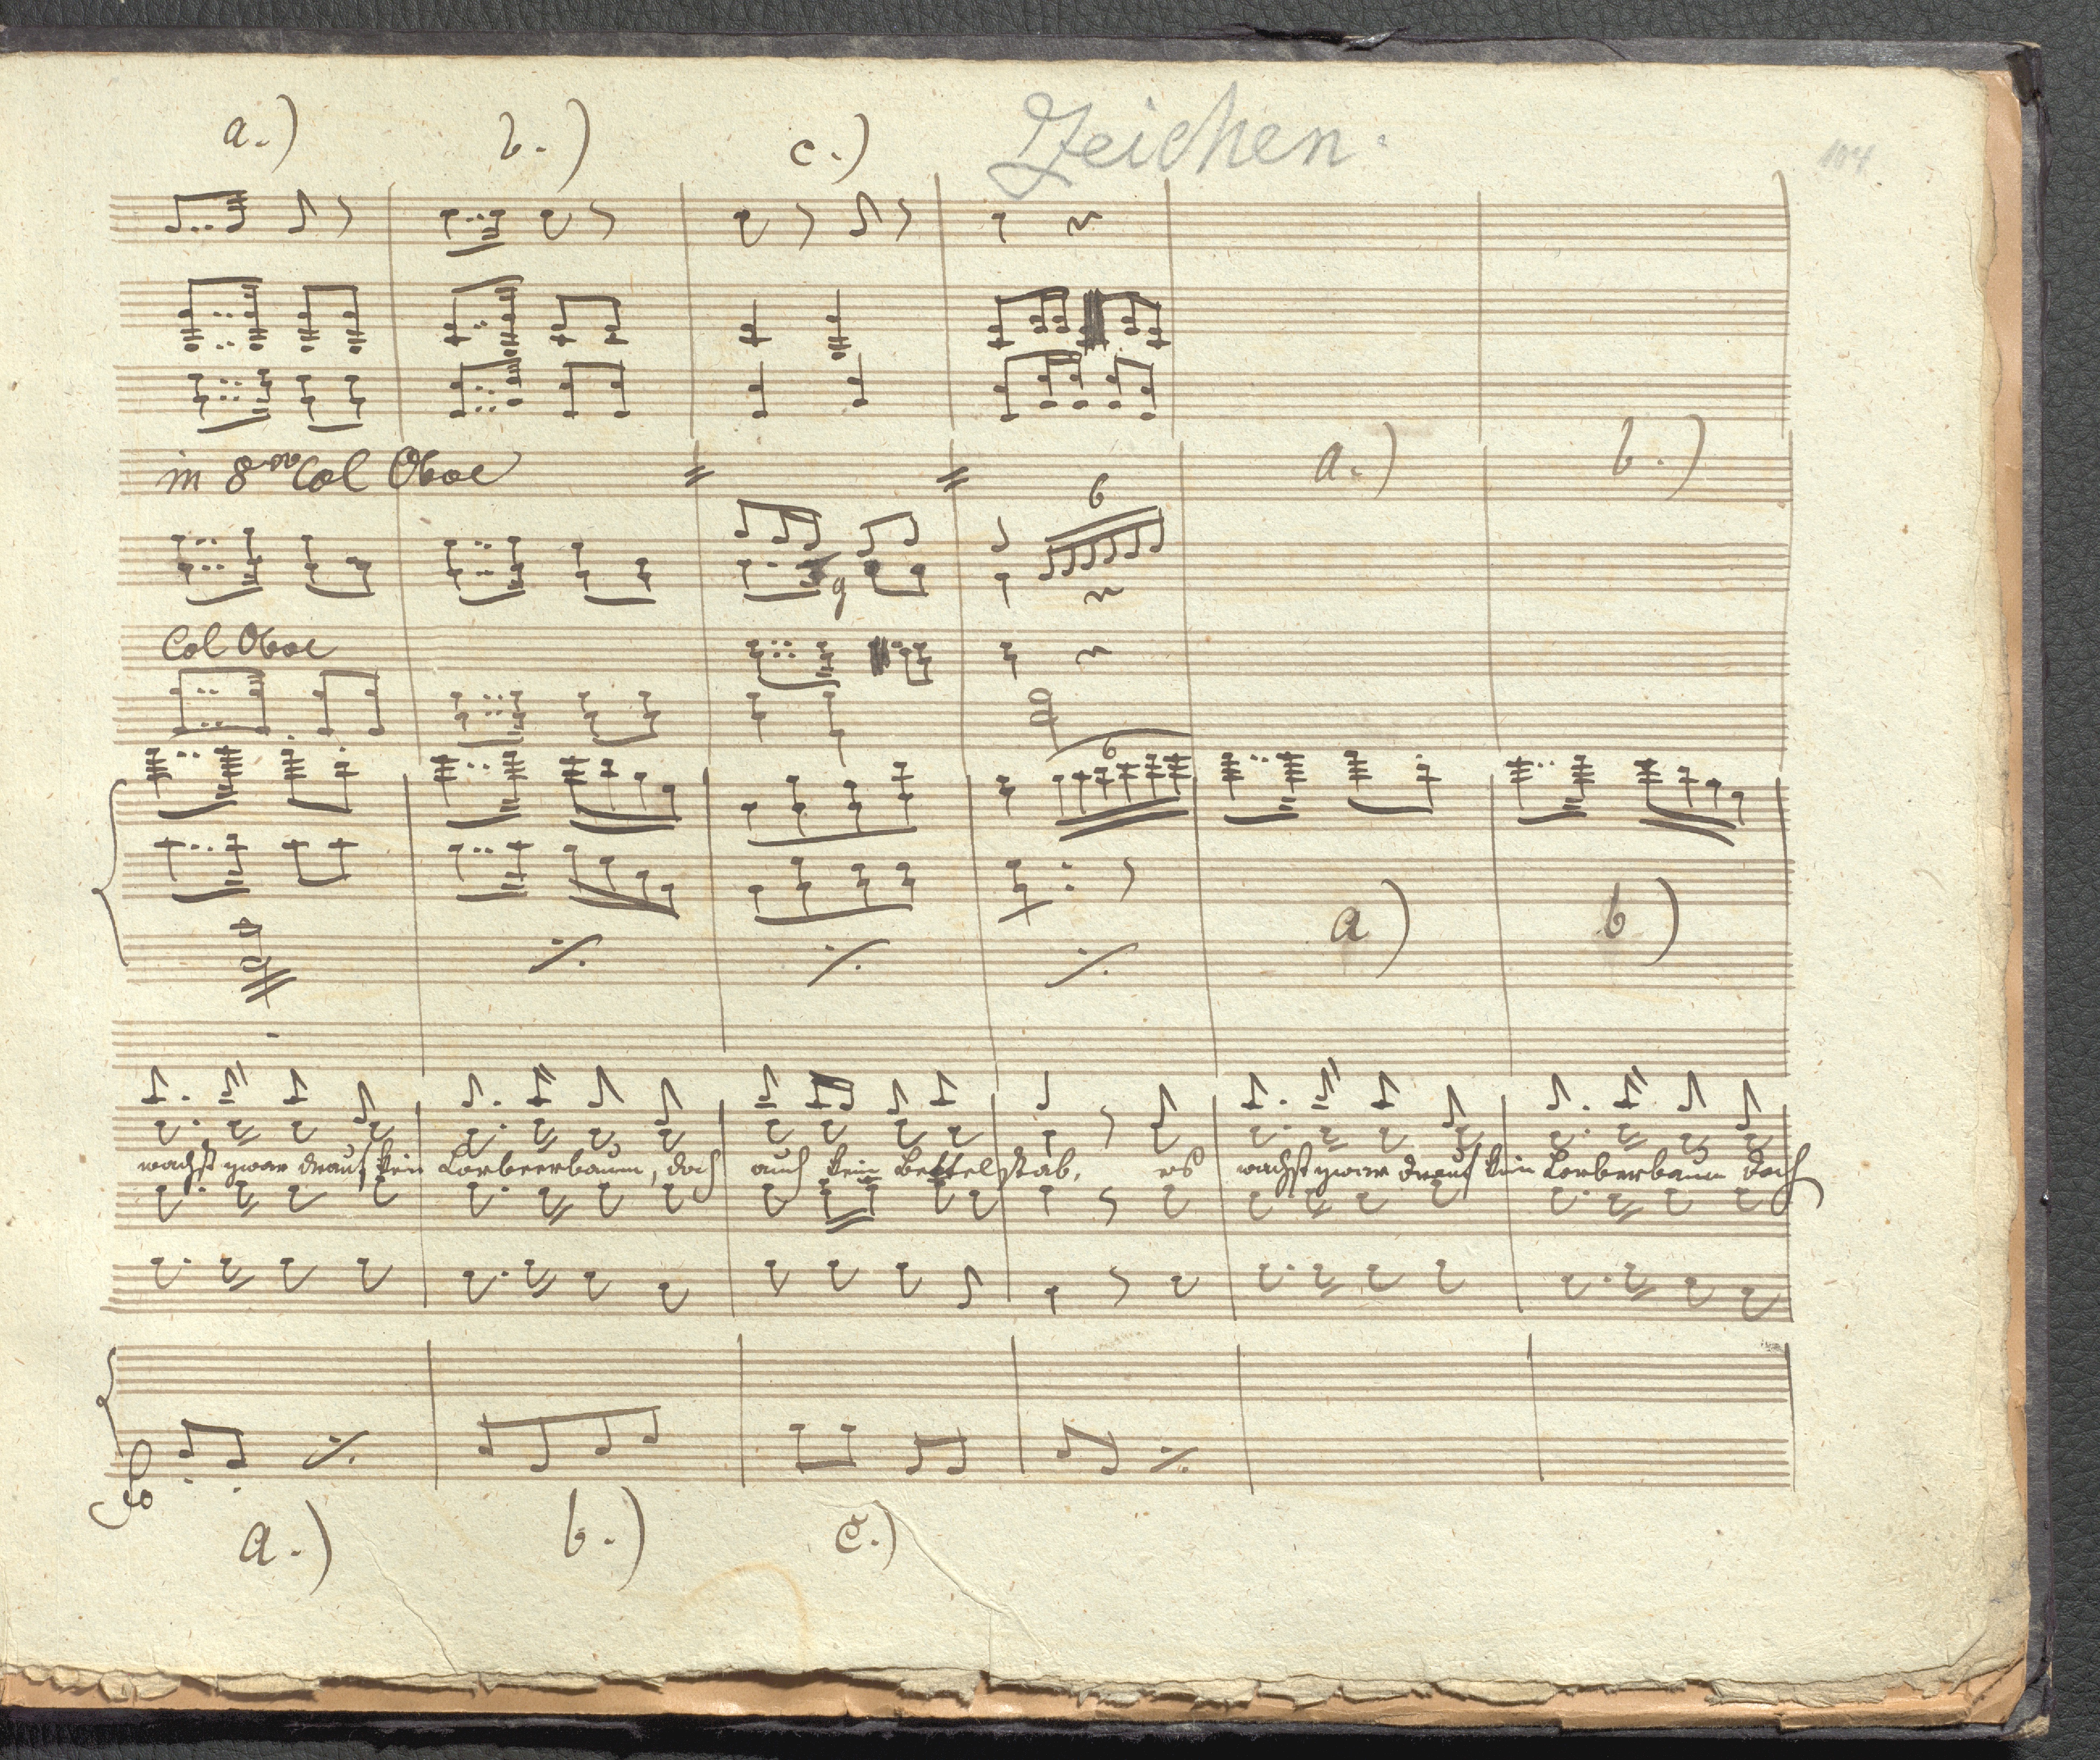 a.) b.) c.) Zeichen. 104
in 8va Col Oboe
a.) b.)
6
Col Oboe
6
a) b)
wachst zwar drauf kein Lorbeerbaum, doch auch kein Bettelstab, es wachst zwar drauf kein Lorberbaum doch
a.) b.) c.)